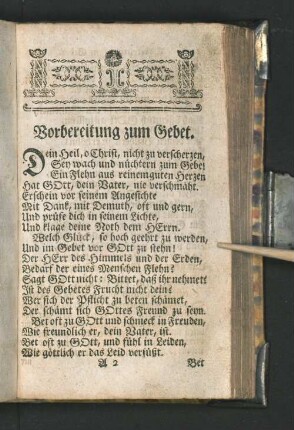 Vorbereitung zum Gebet.
Dein Heil, o Christ, nicht zu verscherzen,
Sey wach und nüchtern zum Gebet
Ein Flehn aus reinem guten Herzen
Hat GOtt, dein Vater, nie verschmäht.
Erschein vor seinem Angesichte
Mit Dank, mit Demuth, oft und gern,
Und prüfe dich in seinem Lichte,
Und klage deine Noth dem HErrn.
Welch Glück, so hoch geehrt zu werden,
Und im Gebet vor GOtt zu stehn!
Der HErr des Himmels und der Erden,
Bedarf der eines Menschen Flehn?
Sagt GOtt nicht: Bittet, daß ihr nehmet?
Ist des Gebetes Frucht nicht dein?
Wer sich der Pflicht zu beten schämet,
Der schämt sich GOttes Freund zu seyn.
Bet oft zu GOtt und schmeck in Freuden,
Wie freundlich er, dein Vater, ist.
Bet oft zu GOtt, und fühl in Leiden,
Wie göttlich er das Leid versüßt.
A 2 Bet